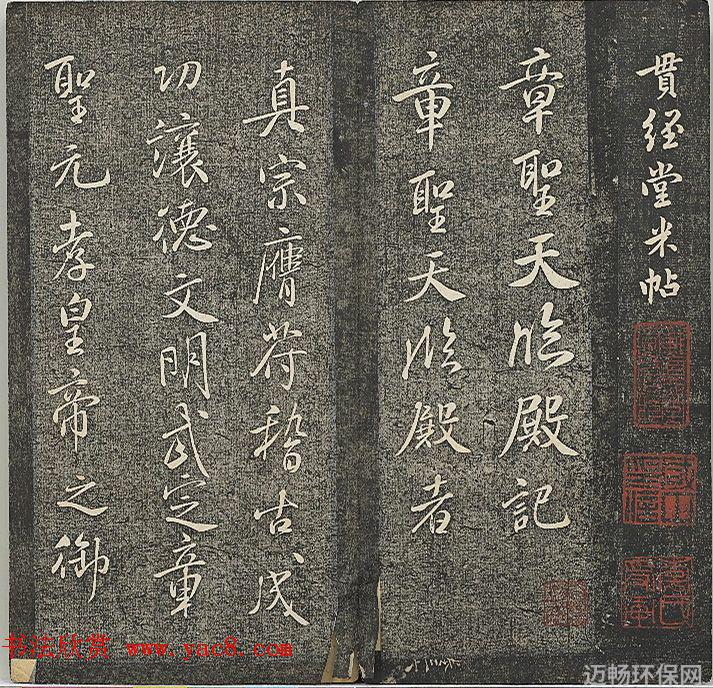 貫經堂米帖
章聖天臨殿記
章聖天臨殿者
真宗膺符稽古成
功讓德文明武定章
聖元孝皇帝之御
书法欣赏 www.yac8.com
迈畅环保网